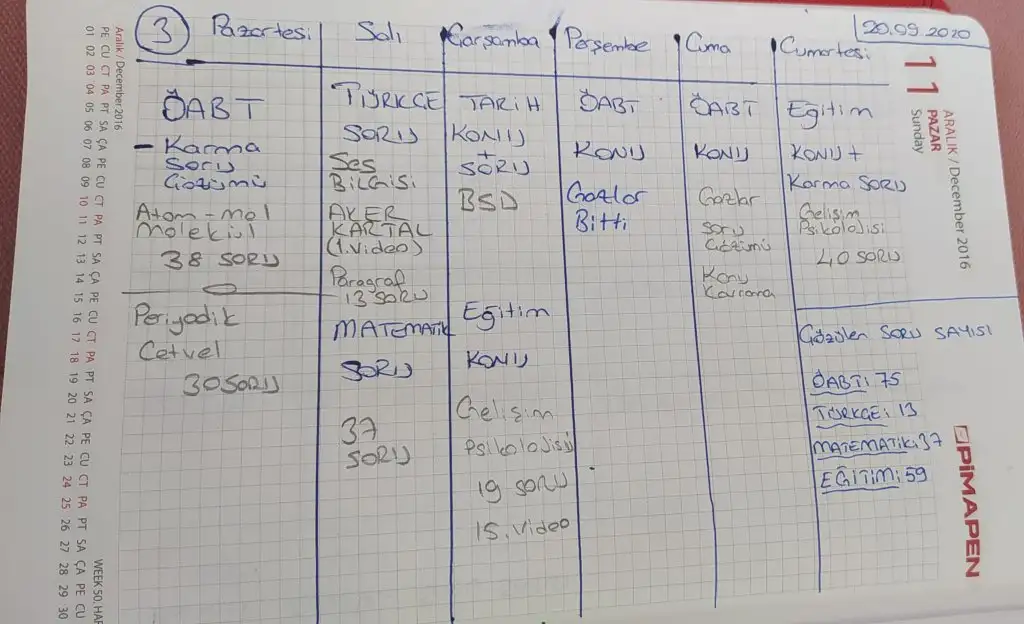 3
Pazartesi
Salı
Çarşamba
Perşembe
Cuma
Cumartesi
20.09.2020
ÖABT
- Karma
Soru
Çözümü
Atom-mol
Molekül
38 SORU
Periyodik
Cetvel
30 SORU
TÜRKÇE
SORU
Ses
BİLGİSİ
AKER
KARTAL
(1.Video)
Paragraf
13 SORU
MATEMATİK
SORU
37
SORU
TARİH
KONU
+
SORU
BSD
Eğitim
KONU
Gelişim
Psikolojisi
19 SORU
15. Video
ÖABT
KONU
Gazlar
Bitti
ÖABT
KONU
Gazlar
Soru
Çözümü
Konu
Kavrama
Eğitim
KONU +
Karma SORU
Gelişim
Psikolojisi
40 SORU
Çözülen SORU SAYISI
ÖABT: 75
TÜRKÇE: 13
MATEMATİK: 37
EĞİTİM: 59
11
ARALIK / December 2016
PAZAR
Sunday
PİMAPEN
Aralık / December 2016
PE CU CT PA PT SA ÇA PE CU CT PA PT SA ÇA PE CU CT PA PT SA ÇA PE CU CT PA PT SA ÇA PE CU
01 02 03 04 05 06 07 08 09 10 11 12 13 14 15 16 17 18 19 20 21 22 23 24 25 26 27 28 29 30
WEEK 50. HAF